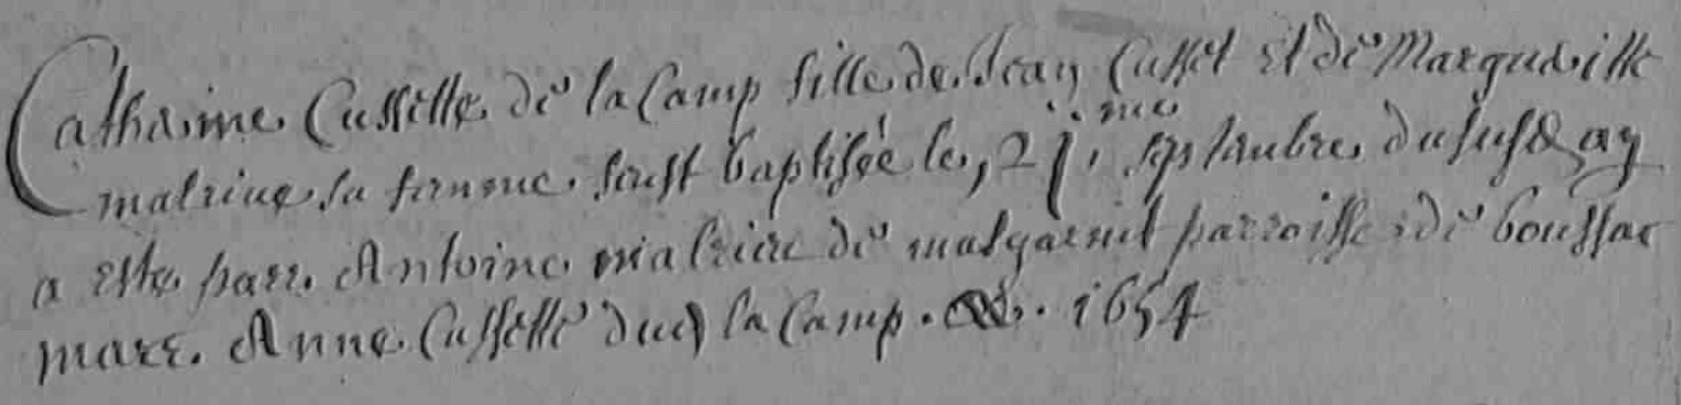 Catharine Cussette de la Camp fille de Jean Cusset Et de Margueritte
matrieue sa femme. feust baptisée le, 2j.me septambre dususd ay
a esté parr. Antoine matrieie de malgaenil parroisse de boussac
marr. Anne Cussette dud la Camp. 1654